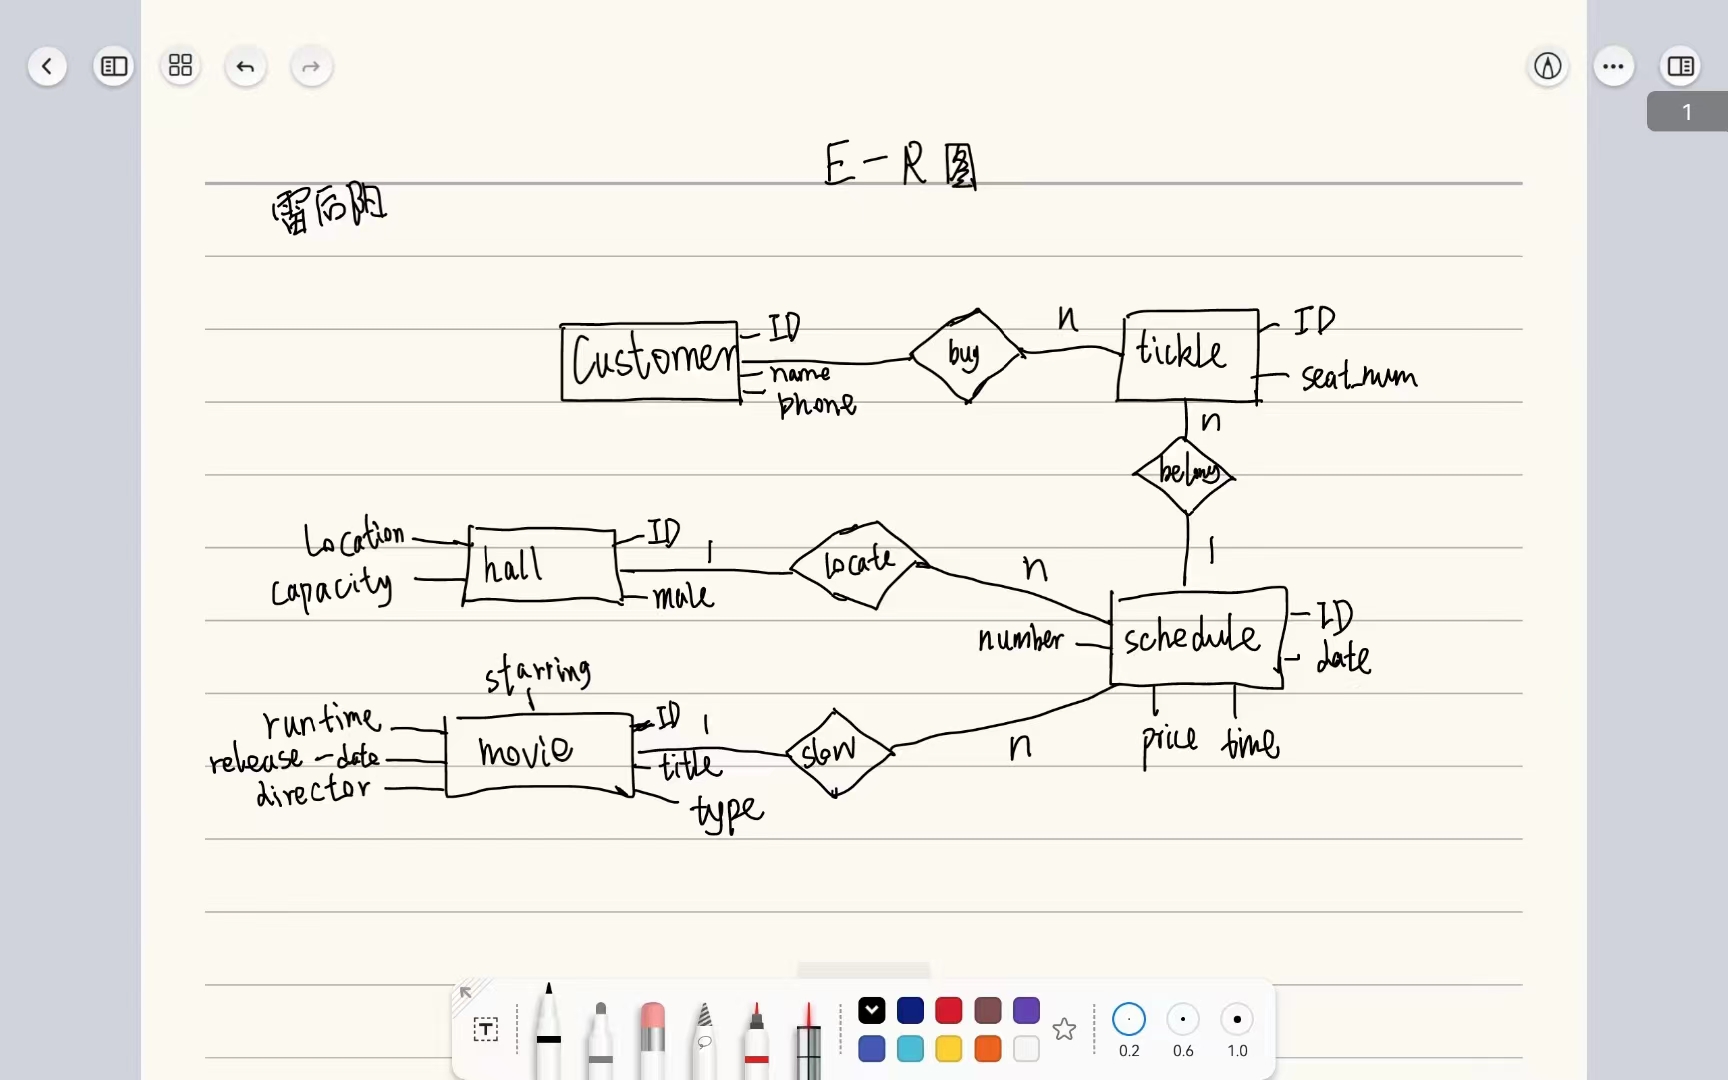 1
E-R图
雷后阳
Customer
ID
name
phone
buy
n
tickle
ID
seat_num
n
belong
1
Location
capacity
hall
ID
1
locate
n
number
schedule
ID
date
price
time
starring
runtime
release-date
director
movie
ID
1
title
type
n
0.2
0.6
1.0